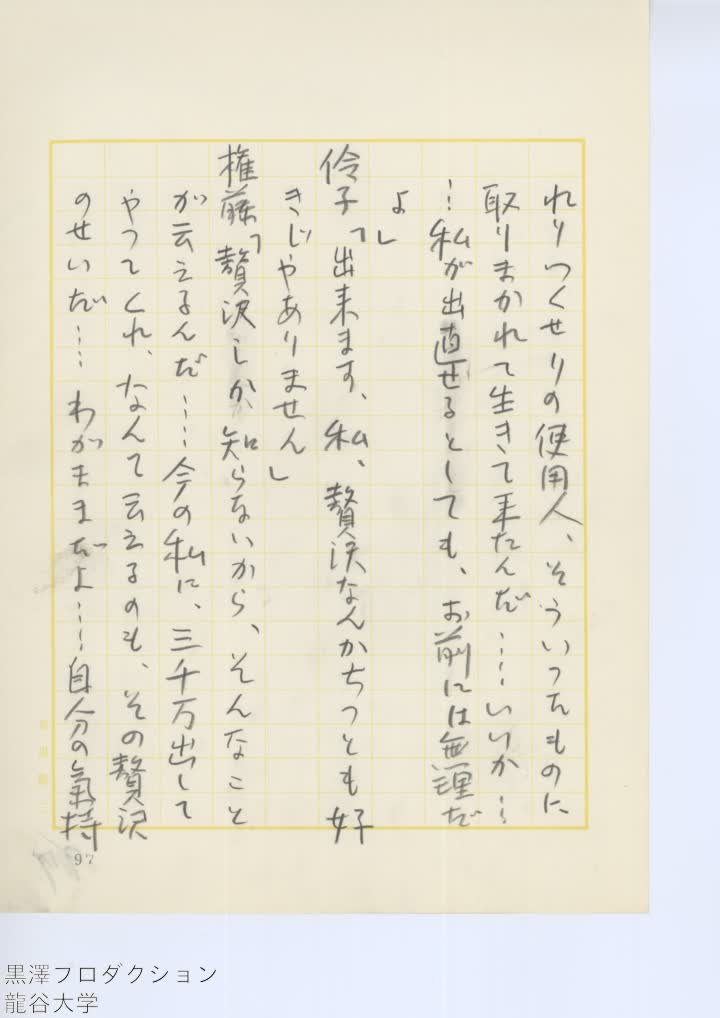 れりつくせりの使用人、そういったものに
取りまかれて生きて来たんだ……いいか…
…私が出直せるとしても、お前には無理だ
よ」
伶子「出来ます、私、贅沢なんかちっとも好
きじゃありません」
権藤「贅沢しか知らないから、そんなこと
が云えるんだ……今の私に、三千万出して
やってくれ、なんて云えるのも、その贅沢
のせいだ……わがままだよ……自分の氣持
97
黒澤プロダクション
龍谷大学